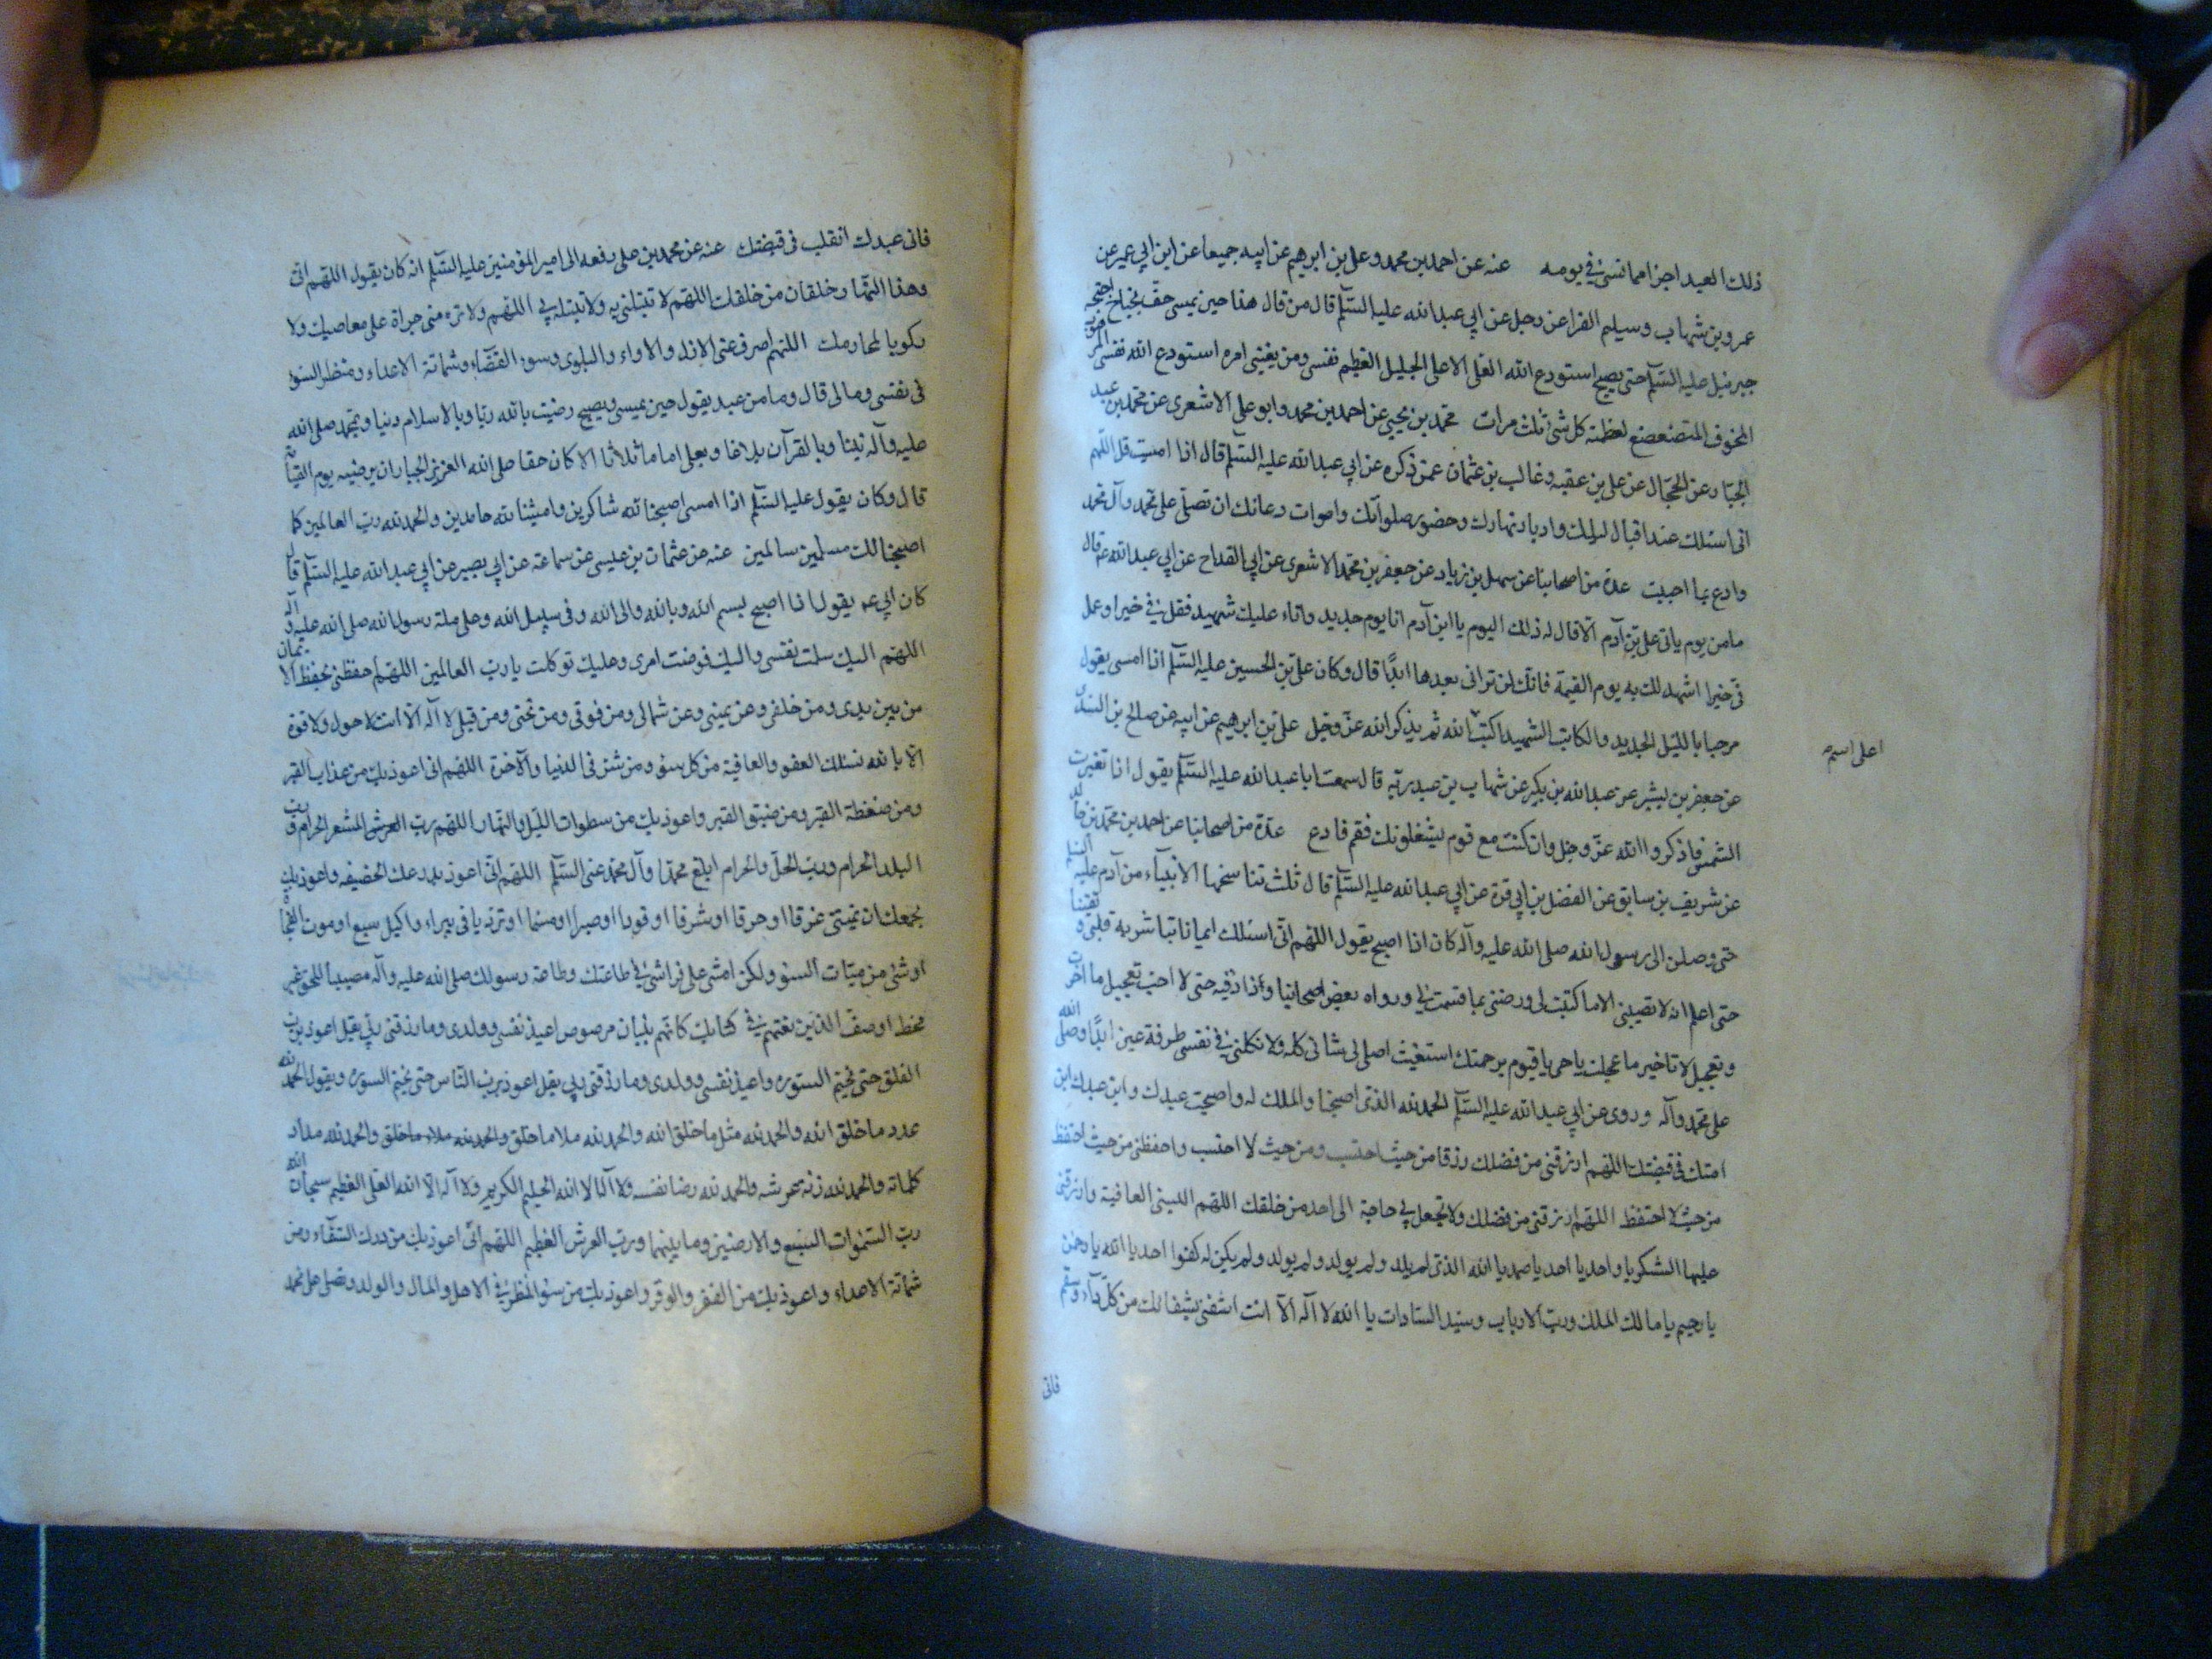 ذلك العبد اجزا مما نسى في يومه عنه عن احمد بن محمد و على بن ابرهيم عن ابيه جميعا عن ابن ابي عمير عن
عمرو بن شهاب و سليم الفرا عن رجل عن ابي عبد الله عليه السلم قال من قال هذا حين يمسى حف بجناح من اجنحة
جبرئيل عليه السلم حتى يصبح استودع الله العلى الاعلى الجليل العظيم نفسى ومن يعنينى امره استودع الله نفسى المرهوب
المخوف المتضعضع لعظمته كل شئ ثلث مرات محمد بن يحيى عن احمد بن محمد و ابو على الاشعرى عن محمد بن عبد
الجبار عن الحجال عن على بن عقبه و غالب بن عثمان عمن ذكره عن ابي عبد الله عليه السلم قال اذا امسيت قل اللهم
انى اسئلك عند اقبال ليلك و ادبار نهارك وحضور صلواتك واصوات دعائك ان تصلى على محمد وآل محمد
وادع بما احببت عدة من اصحابنا عن سهل بن زياد عن جعفر بن محمد الاشعرى عن ابي القداح عن ابي عبد الله ع قال
ما من يوم ياتى على بن آدم الا قال له ذلك اليوم يا ابن آدم انا يوم جديد وانا عليك شهيد فقل في خيرا وعمل
في خيرا اشهد لك به يوم القيمة فانك لن ترانى بعدها ابدا قال وكان على بن الحسين عليه السلم اذا امسى يقول
مرحبا بالليل الجديد والكاتب الشهيد اكتبا الله ثم يذكر الله عز وجل على بن ابرهيم عن ابيه عن صالح بن السندى
اعلى اسم
عن جعفر بن بشير عن عبد الله بن بكير عن شهاب بن عبد ربه قال سمعت ابا عبد الله عليه السلم يقول اذا تغيرت
الشمس فاذكروا الله عز وجل وان كنت مع قوم يشغلونك فقم فادع عدة من اصحابنا عن احمد بن محمد بن خالد
عن شريف بن سابق عن الفضل بن ابي قرة عن ابي عبد الله عليه السلم قال ثلث تناسخها الانبياء من آدم عليه السلم
حتى وصلن الى رسول الله صلى الله عليه وآله كان اذا اصبح يقول اللهم انى اسئلك ايمانا تباشر به قلبى و يقينا
حتى اعلم انه لا تصيبنى الا ما كتبت لى ورضنى بما قسمت لي ورواه بعض اصحابنا و زاد فيه حتى لا احب تعجيل ما اخرت
وتعجيل لا تاخير ما عجلت يا حى يا قيوم برحمتك استغيث اصلح لى شانى كله ولا تكلنى في نفسى طرفة عين ابدا وصلى الله
على محمد وآله وروى عن ابي عبد الله عليه السلم الحمد لله الذى اصبحنا والملك له واصبحت عبدك و ابن عبدك ابن
امتك في قبضتك اللهم ارزقنى من فضلك رزقا من حيث احتسب ومن حيث لا احتسب واحفظنى من حيث احتفظ
من حيث لا احتفظ اللهم ارزقنى من فضلك ولا تجعل لي حاجة الى احد من خلقك اللهم البسنى العافية وارزقنى
عليها الشكر يا واحد يا احد يا صمد يا الله الذى لم يلد ولم يولد ولم يولد ولم يكن له كفوا احد يا الله يا رحمن
يا رحيم يا مالك الملك ورب الارباب وسيد السادات يا الله لا آله الا انت اشفنى بشفائك من كل داء وسقم
فانى
فانى عبدك اتقلب في قبضتك عنه عن محمد بن على رفعه الى امير المؤمنين عليه السلم انه كان يقول اللهم انى
وهذا النهار خلقان من خلقك اللهم لا تبتلنى به ولا تبتله بي اللهم ولا تره منى جراة على معاصيك ولا
ركوبا لمحارمك اللهم اصرف عنى الازل والاواء والبلوى وسوء القضاء وشماتة الاعداء ومنظر السوء
في نفسى ومالى قال وما من عبد يقول حين يمسى ويصبح رضيت بالله ربا وبالاسلام دينا وبمحمد صلى الله
عليه وآله نبيا وبالقرآن بلاغا وبعلى اماما ثلاثا الا كان حقا على الله العزيز الجبار ان يرضيه يوم القيمة
قال وكان يقول عليه السلم اذا امسى اصبحنا لله شاكرين وامسينا لله حامدين والحمد لله رب العالمين كما
اصبحنا لك مسلمين سالمين عنه عن عثمان بن عيسى عن سماعة عن ابي بصير عن ابي عبد الله عليه السلم قال
كان ابي ع يقول اذا اصبح بسم الله وبالله والى الله وفى سبيل الله وعلى ملة رسول الله صلى الله عليه وآله
اللهم اليك سلمت نفسى واليك فوضت امرى وعليك توكلت يا رب العالمين اللهم احفظنى بحفظ الايمان
من بين يدى ومن خلفى وعن يمينى وعن شمالى ومن فوقى ومن تحتى ومن قبلى لا آله الا انت لا حول ولا قوة
الا بالله نسئلك العفو والعافية من كل سوء ومن شر في الدنيا والآخرة اللهم انى اعوذ بك من عذاب القبر
ومن ضغطة القبر ومن ضيق القبر واعوذ بك من سطوات الليل والنهار اللهم رب العرش المشعر الحرام ورب
البلد الحرام ورب الحل والحرام ابلغ محمدا وآل محمد عنى السلم اللهم انى اعوذ بدرعك الحصينه واعوذ بك
بجمعك ان تميتنى غرقا او حرقا او شرقا او قودا او صبرا او مسما او ترديا في بيراء واكيل سبع او موت الفجأة
او شئ من ميتات السوء ولكن امتنى على فراشى في طاعتك وطاعة رسولك صلى الله عليه وآله مصيبا للحق غير
مخط او صف الذين نعتهم في كتابك كانهم بنيان مرصوص اعيذ نفسى وولدى وما رزقنى ربى بقل اعوذ برب
الفلق حتى يختم السورة واعيذ نفسى وولدى وما رزقنى ربى بقل اعوذ برب الناس حتى يختم السورة ويقول الحمد لله
عدد ما خلق الله والحمد لله مثل ما خلق الله والحمد لله ملا ما خلق والحمد لله ملاء ما خلق والحمد لله مداد
كلماته والحمد لله زنة عرشه والحمد لله رضا نفسه ولا آله الا الله الحليم الكريم ولا آله الا الله العلى العظيم سبحان الله
رب السموات السبع والارضين وما بينهما ورب العرش العظيم اللهم انى اعوذ بك من درك الشقاء ومن
شماتة الاعداء واعوذ بك من الفقر والوقر واعوذ بك من سوء المنظر في الاهل والمال والولد وتصلى على محمد